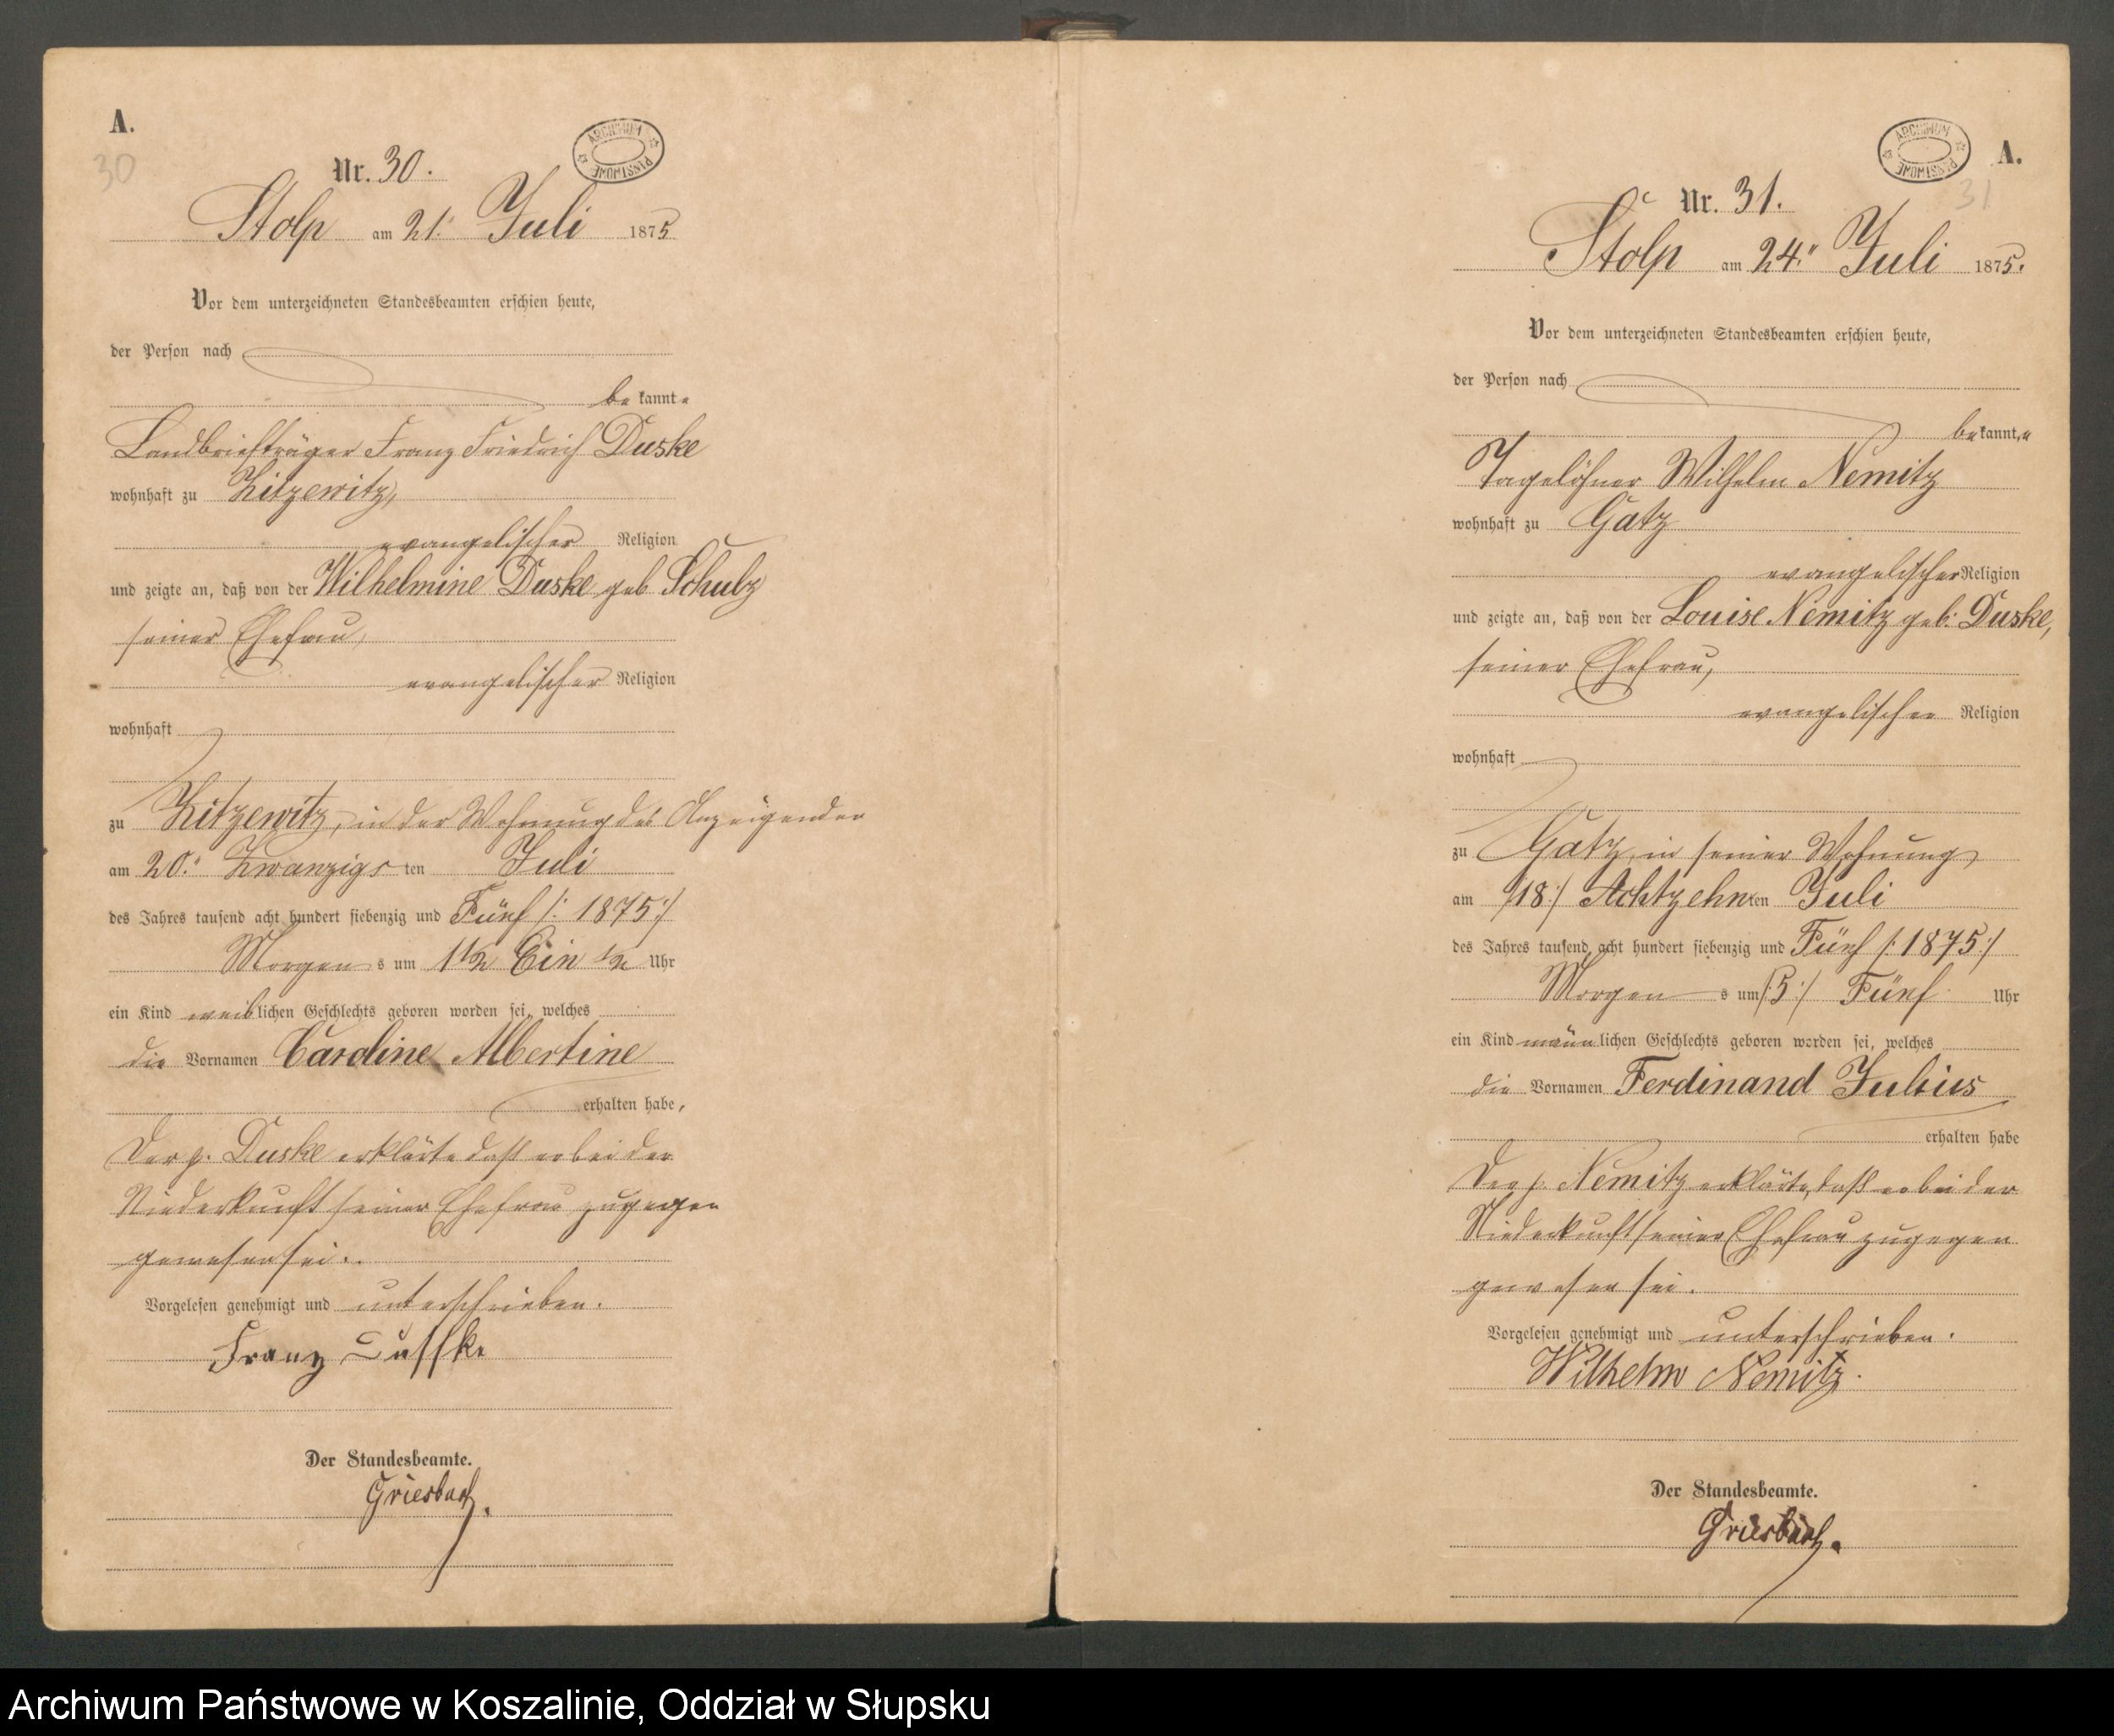 A.
30
Nr. 30.
ARCHIWUM PAŃSTWOWE
Stolp am 21. Juli 1875
Vor dem unterzeichneten Standesbeamten erschien heute,
der Person nach
bekannte
Landbriefträger Franz Friedrich Duske
wohnhaft zu Zitzewitz,
evangelischer Religion
und zeigte an, daß von der Wilhelmine Duske geb Schulz
seiner Ehefrau,
evangelischer Religion
wohnhaft
zu Zitzewitz, in der Wohnung des Anzeigenden
am 20. Zwanzigsten Juli
des Jahres tausend acht hundert siebenzig und Fünf /: 1875 :/
Morgens um 1 1/2 Ein 1/2 Uhr
ein Kind weiblichen Geschlechts geboren worden sei, welches
die Vornamen Caroline Albertine
erhalten habe,
Der p. Duske erklärte daß er bei der
Niederkunft seiner Ehefrau zugegen
gewesen sei.
Vorgelesen genehmigt und unterschrieben.
Franz Dusske
Der Standesbeamte.
Griesbach.
ARCHIWUM PAŃSTWOWE
A.
31
Nr. 31.
Stolp am 24. Juli 1875.
Vor dem unterzeichneten Standesbeamten erschien heute,
der Person nach
bekannte
Tagelöhner Wilhelm Nemitz
wohnhaft zu Gatz
evangelischer Religion
und zeigte an, daß von der Louise Nemitz geb: Duske,
seiner Ehefrau,
evangelischer Religion
wohnhaft
zu Gatz, in seiner Wohnung
am /18:/ Achtzehnten Juli
des Jahres tausend acht hundert siebenzig und Fünf /: 1875 :/
Morgens um /: 5 :/ Fünf Uhr
ein Kind männlichen Geschlechts geboren worden sei, welches
die Vornamen Ferdinand Julius
erhalten habe
Der p. Nemitz erklärte, daß er bei der
Niederkunft seiner Ehefrau zugegen
gewesen sei.
Vorgelesen genehmigt und unterschrieben.
Wilhelm Nemitz.
Der Standesbeamte.
Griesbach.
Archiwum Państwowe w Koszalinie, Oddział w Słupsku